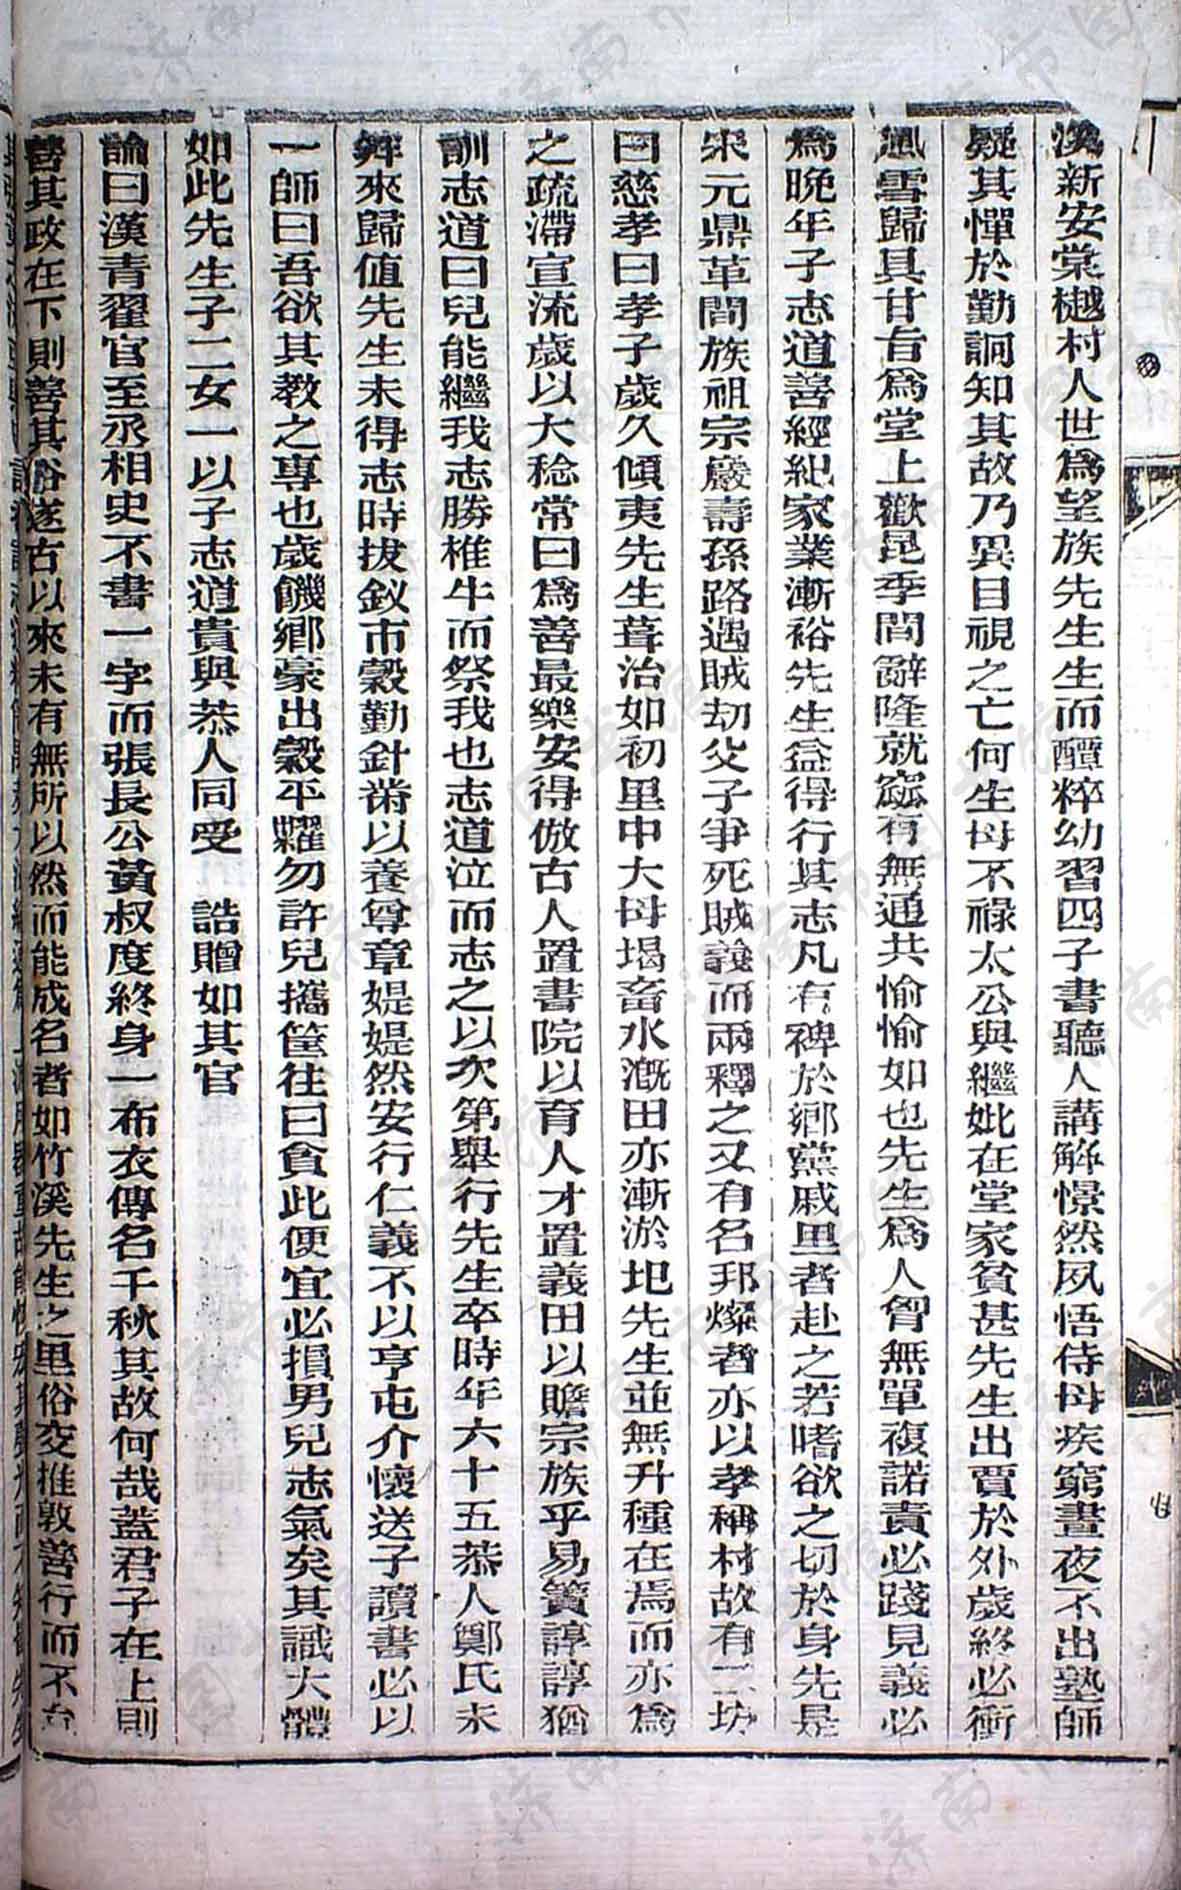 溪新安棠樾村人世為望族先生生而醰粹幼習四子書聽人講解憬然夙悟侍母疾窮晝夜不出塾師
疑其憚於勤詗知其故乃異目視之亡何生母不祿太公與繼妣在堂家貧甚先生出賈於外歲終必衝
風雪歸具甘旨為堂上歡昆季間辭隆就窳有無通共愉愉如也先生為人曾無單複諾責必踐見義必
為晚年子志道善經紀家業漸裕先生益得行其志凡有裨於鄉黨戚里者赴之若嗜欲之切於身先是
宋元鼎革間族祖宗巖壽孫路遇賊刧父子爭死賊義而兩釋之又有名邦燦者亦以孝稱村故有二坊
曰慈孝曰孝子歲久傾夷先生葺治如初里中大母堨畜水溉田亦漸淤圯先生並無升種在焉而亦為
之疏滯宣流歲以大稔常曰為善最樂安得倣古人置書院以育人才置義田以贍宗族乎易簀諄諄猶
訓志道曰兒能繼我志勝椎牛而祭我也志道泣而志之以次第舉行先生卒時年六十五恭人鄭氏未
笄來歸值先生未得志時拔釵市穀勤針黹以養尊章媞媞然安行仁義不以亨屯介懷送子讀書必以
一師曰吾欲其教之專也歲饑鄉豪出穀平糶勿許兒攜筐往曰貪此便宜必損男兒志氣矣其識大體
如此先生子二女一以子志道貴與恭人同受 誥贈如其官
論曰漢青翟官至丞相史不書一字而張長公黃叔度終身一布衣傳名千秋其故何哉蓋君子在上則
善其政在下則善其俗遂古以來未有無所以然而能成名者如竹溪先生之里俗交推敦善行而不怠